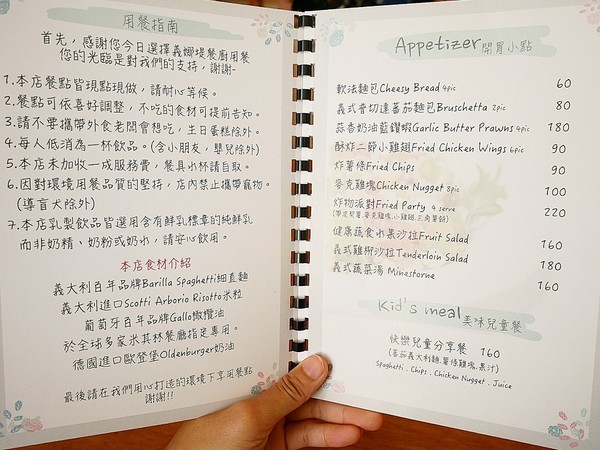 用餐指南
首先，感謝您今日選擇義娜堤餐廚用餐
您的光臨是對我們的支持，謝謝~
1.本店餐點皆現點現做，請耐心等候。
2.餐點可依喜好調整，不吃的食材可提前告知。
3.請不要攜帶外食老闆會想吃，生日蛋糕除外。
4.每人低消為一杯飲品。(含小朋友，嬰兒除外)
5.本店未加收一成服務費，餐具水杯請自取。
6.因對環境用餐品質的堅持，店內禁止攜帶寵物。
(導盲犬除外)
7.本店乳製飲品皆選用含有鮮乳標章的純鮮乳
而非奶精、奶粉或奶水，請安心飲用。
本店食材介紹
義大利百年品牌Barilla Spaghetti細直麵
義大利進口Scotti Arborio Risotto米粒
葡萄牙百年品牌Gallo橄欖油
於全球多家米其林餐廳指定專用。
德國進口歐登堡Oldenburger奶油
最後請在我們用心打造的環境下享用餐點
謝謝!!
Appetizer開胃小點
軟法麵包Cheesy Bread 4pic 60
義式普切達蕃茄麵包Bruschetta 2pic 80
蒜香奶油藍鑽蝦Garlic Butter Prawns 4pic 180
酥炸二節小雞翅Fried Chicken Wings 6pic 90
炸薯條Fried Chips 90
麥克雞塊Chicken Nugget 8pic 100
炸物派對Fried Party 4 serve 220
健康蔬食水果沙拉Fruit Salad 160
義式雞柳沙拉Tenderloin Salad 180
義式蔬菜湯 Minestorne 160
Kid's meal美味兒童餐
快樂兒童分享餐 160
(蕃茄義大利麵.薯條雞塊.果汁)
Spaghetti . Chips . Chicken Nugget . Juice